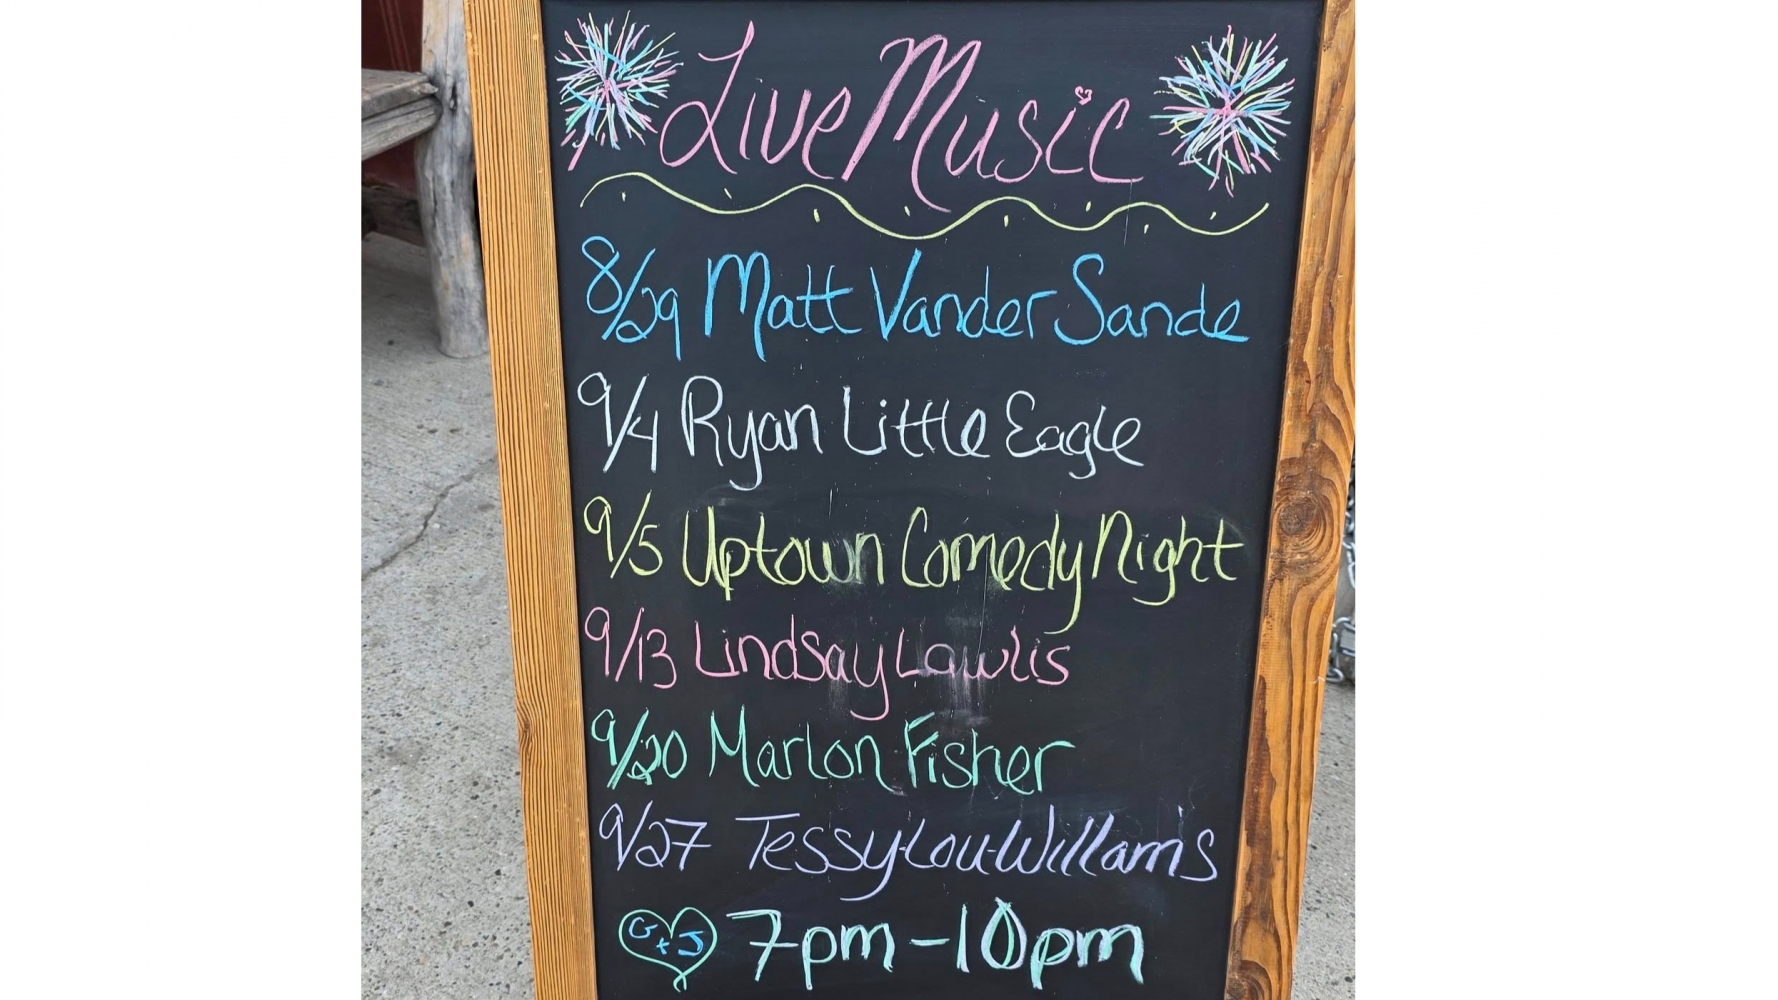 Live Music
8/29 Matt Vander Sande
9/4 Ryan Little Eagle
9/5 Uptown Comedy Night
9/13 Lindsay Lawlis
9/20 Marlon Fisher
9/27 Tessy-Lou-Willam's
G+J 7pm-10pm